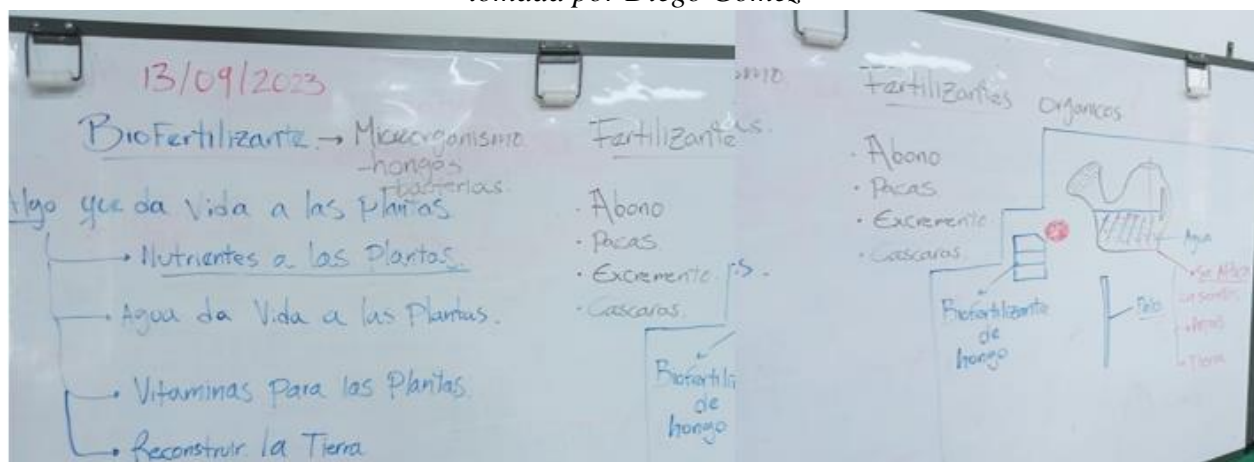 tomada por Diego Gómez
13/09/2023
BioFertilizante → Microorganismo
-hongos
bacterias
Algo que da vida a las plantas
Nutrientes a las Plantas.
Agua da Vida a las Plantas.
Vitaminas Para las Plantas
Reconstruir la Tierra
Fertilizante
· Abono
· Pacas.
· Excremento
· Cascaras.
Biofertili
de
hongo
Fertilizantes organicos
· Abono
· Pacas.
· Excremento
· Cascaras.
Biofertilizante
de
hongo
Agua
Palo
· Tierra